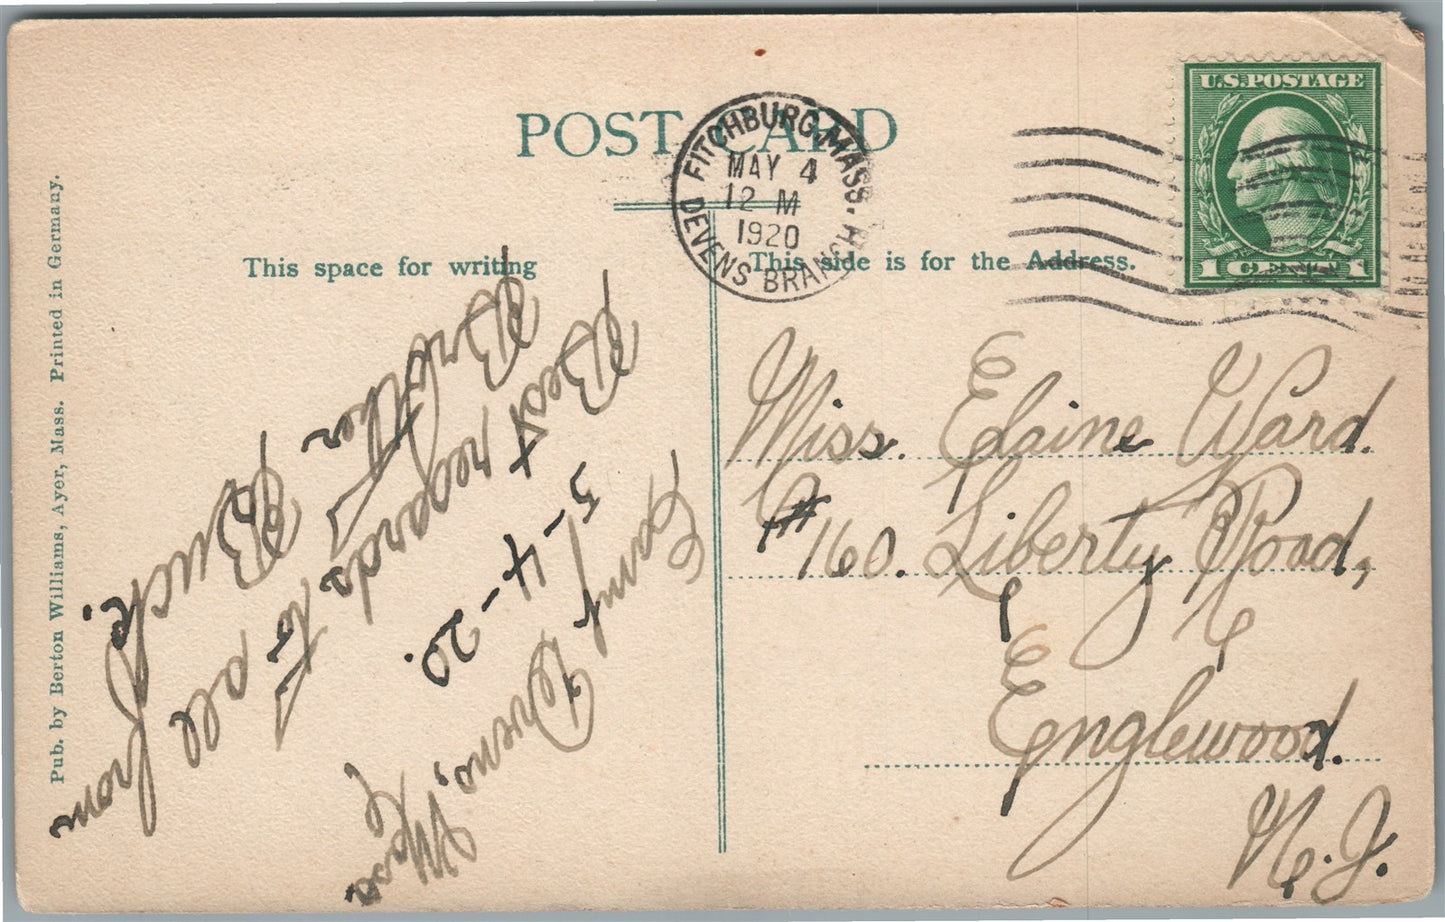 POST CARD
FITCHBURG, MASS.
MAY 4
12 M
1920
DEVENS BRANCH
U.S. POSTAGE
1 CENT 1
This space for writing
This side is for the Address.
Pub. by Berton Williams, Ayer, Mass. Printed in Germany.
Camp Devens,
Mass
5-4-20.
Best regards
to all
from
Brother
Buck.
Miss. Elaine Ward.
#160. Liberty Road,
Englewood.
N. J.